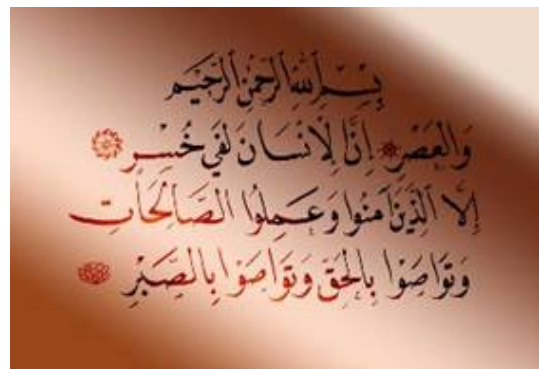 بِسْمِ ٱللَّهِ ٱلرَّحْمَٰنِ ٱلرَّحِيْمِ
وَالْعَصْرِ إِنَّ الْإِنْسَانَ لَفِي خُسْرٍ
إِلَّا الَّذِينَ آمَنُوا وَعَمِلُوا الصَّالِحَاتِ
وَتَوَاصَوْا بِالْحَقِّ وَتَوَاصَوْا بِالصَّبْرِ